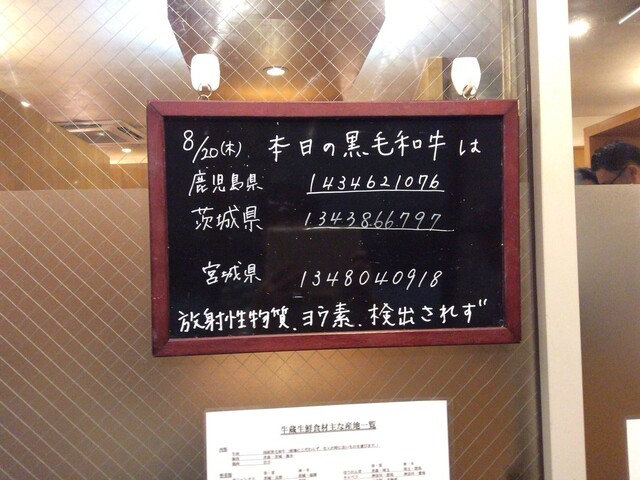 8/20(木) 本日の黒毛和牛は
鹿児島県 1434621076
茨城県 1343866797
宮城県 1348040918
放射性物質、ヨウ素、検出されず
牛蔵生鮮食材主な産地一覧